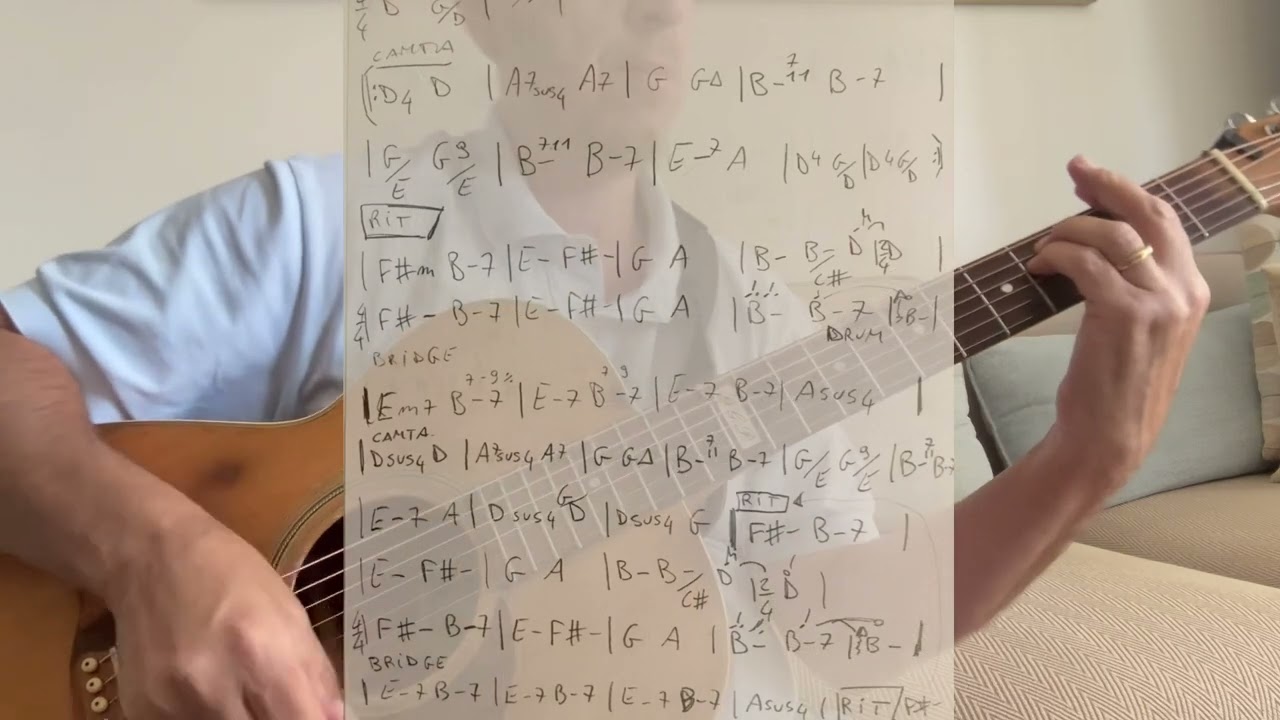 4 D G/D |
CAMTA
|:D4 D | A7sus4 A7 | G G∆ | B-7 11 B-7 |
| G/E G9/E | B-7 11 B-7 | E-7 A | D4 G/D | D4 G/D :|
RIT
| F#m B-7 | E- F#- | G A | B- B-/C# D | 2/4 D |
4/4 | F#- B-7 | E- F#- | G A | B- B-7 | B- |
DRUM
BRIDGE
| Em7 B-7 | E-7 B-7 | E-7 B-7 | Asus4 |
CAMTA
| Dsus4 D | A7sus4 A7 | G G∆ | B-7 11 B-7 | G/E G9/E | B-7 11 B-7
| E-7 A | Dsus4 G/D | Dsus4 G | RIT F#- B-7 |
| E- F#- | G A | B- B-/C# D | 2/4 D |
4/4 | F#- B-7 | E- F#- | G A | B- B-7 | B- |
BRIDGE
| E-7 B-7 | E-7 B-7 | E-7 B-7 | Asus4 | RIT F#-